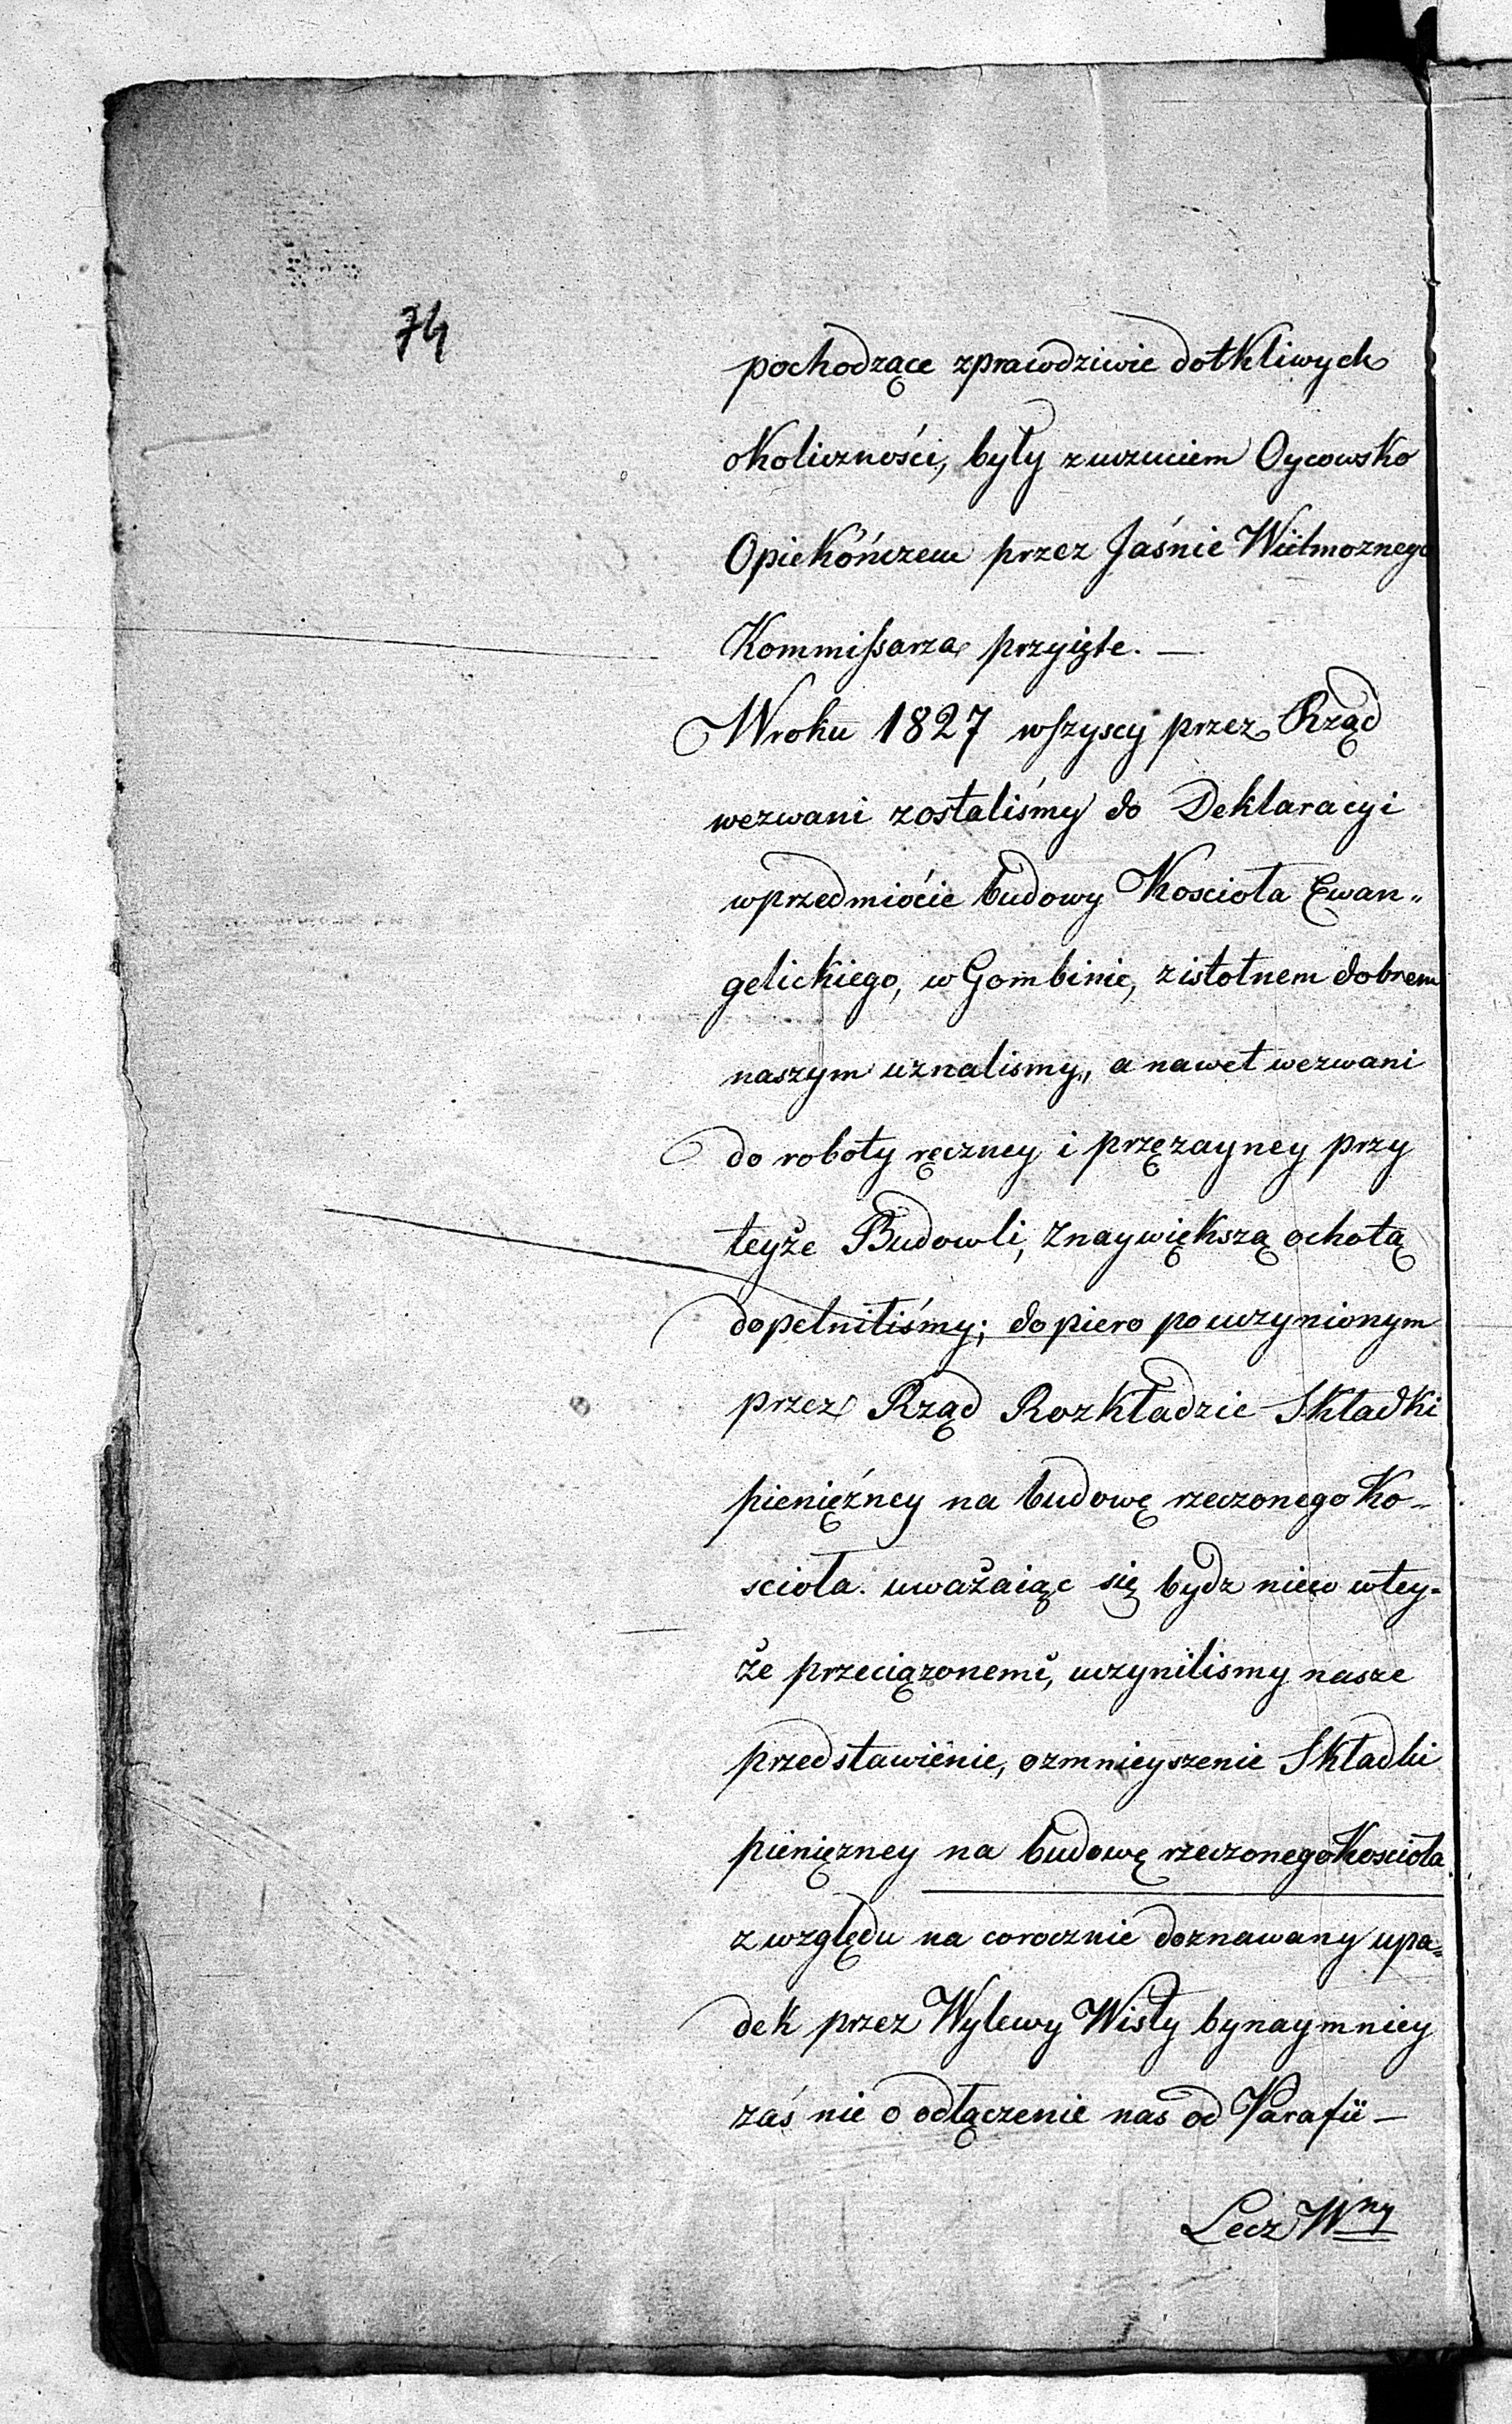 74
pochodzące zprawdziwie dotkliwych
okoliczności, były zuczuciem Oycowsko
Opiekóńczem przez Jaśnie Wielmoznego
Kommissarza przyięte. —
Wroku 1827 wszyscy przez Rząd
wezwani zostaliśmy do Deklaracyi
wprzedmiócie budowy Koscioła Ewan„
gelickiego, w Gombinie, zistotnem dobrem
naszym uznalismy„ a nawet wezwani
do roboty ręczney i przęzayney przy
teyże Budowli, Znaywiększą ochotą
dopełniliśmy; dopiero po uczynionym
przez Rząd Rozkładzie Składki
pieniężney na budowę rzeczonego Ko-
scioła. uważaiąc się bydz nieco wtey-
że przeciązonemi, uczynilismy nasze
przedstawienie, ozmnieyszenie Składki
pienięzney na budowę rzeczonego Koscioła
z względu na corocznie doznawany upa„
dek przez Wylewy Wisły bynaymniey
zaś nie o odłączenie nas od Parafii —
Lecz Wny